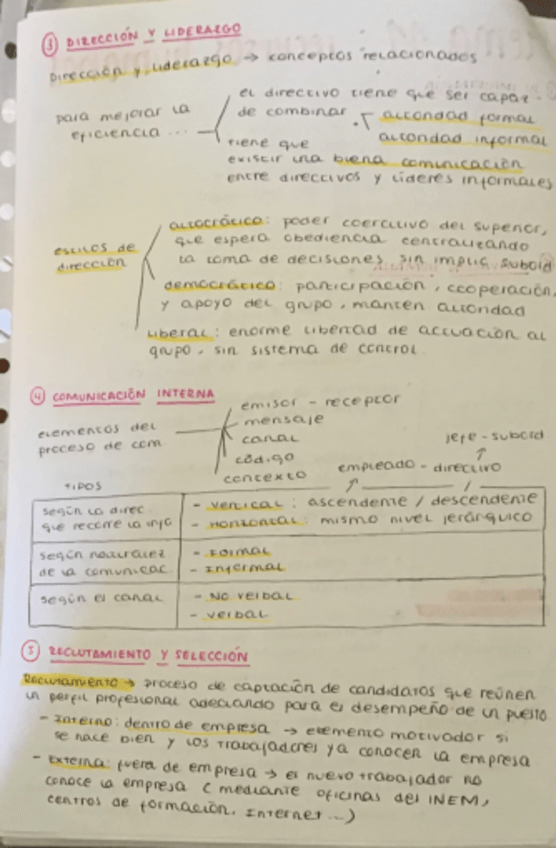 ③ DIRECCIÓN Y LIDERAZGO
Dirección y liderazgo → conceptos relacionados
para mejorar la eficiencia ...
el directivo tiene que ser capaz
de combinar autoridad formal
autoridad informal
tiene que
existir una buena comunicación
entre directivos y líderes informales
estilos de
dirección
autocrático: poder coercitivo del superior,
que espera obediencia centralizando
la toma de decisiones sin implic. subord
democrático: participación, cooperación,
y apoyo del grupo, manten autoridad
liberal: enorme libertad de actuación al
grupo, sin sistema de control
④ COMUNICACIÓN INTERNA
elementos del
proceso de com
emisor - receptor
mensaje
canal
código
contexto
jefe - subord
↑
empleado - directivo
TIPOS
según la direc.
que recorre la info
- vertical: ascendente / descendente
- horizontal: mismo nivel jerárquico
según naturalez
de la comunicac
- Formal
- Informal
según el canal
- No verbal
- verbal
⑤ RECLUTAMIENTO Y SELECCIÓN
Reclutamiento → proceso de captación de candidatos que reúnen
un perfil profesional adecuando para el desempeño de un puesto
- Interno: dentro de empresa → elemento motivador si
se hace bien y los trabajadores ya conocen la empresa
- Externa: fuera de empresa → el nuevo trabajador no
conoce la empresa (mediante oficinas del INEM,
centros de formación, Internet...)